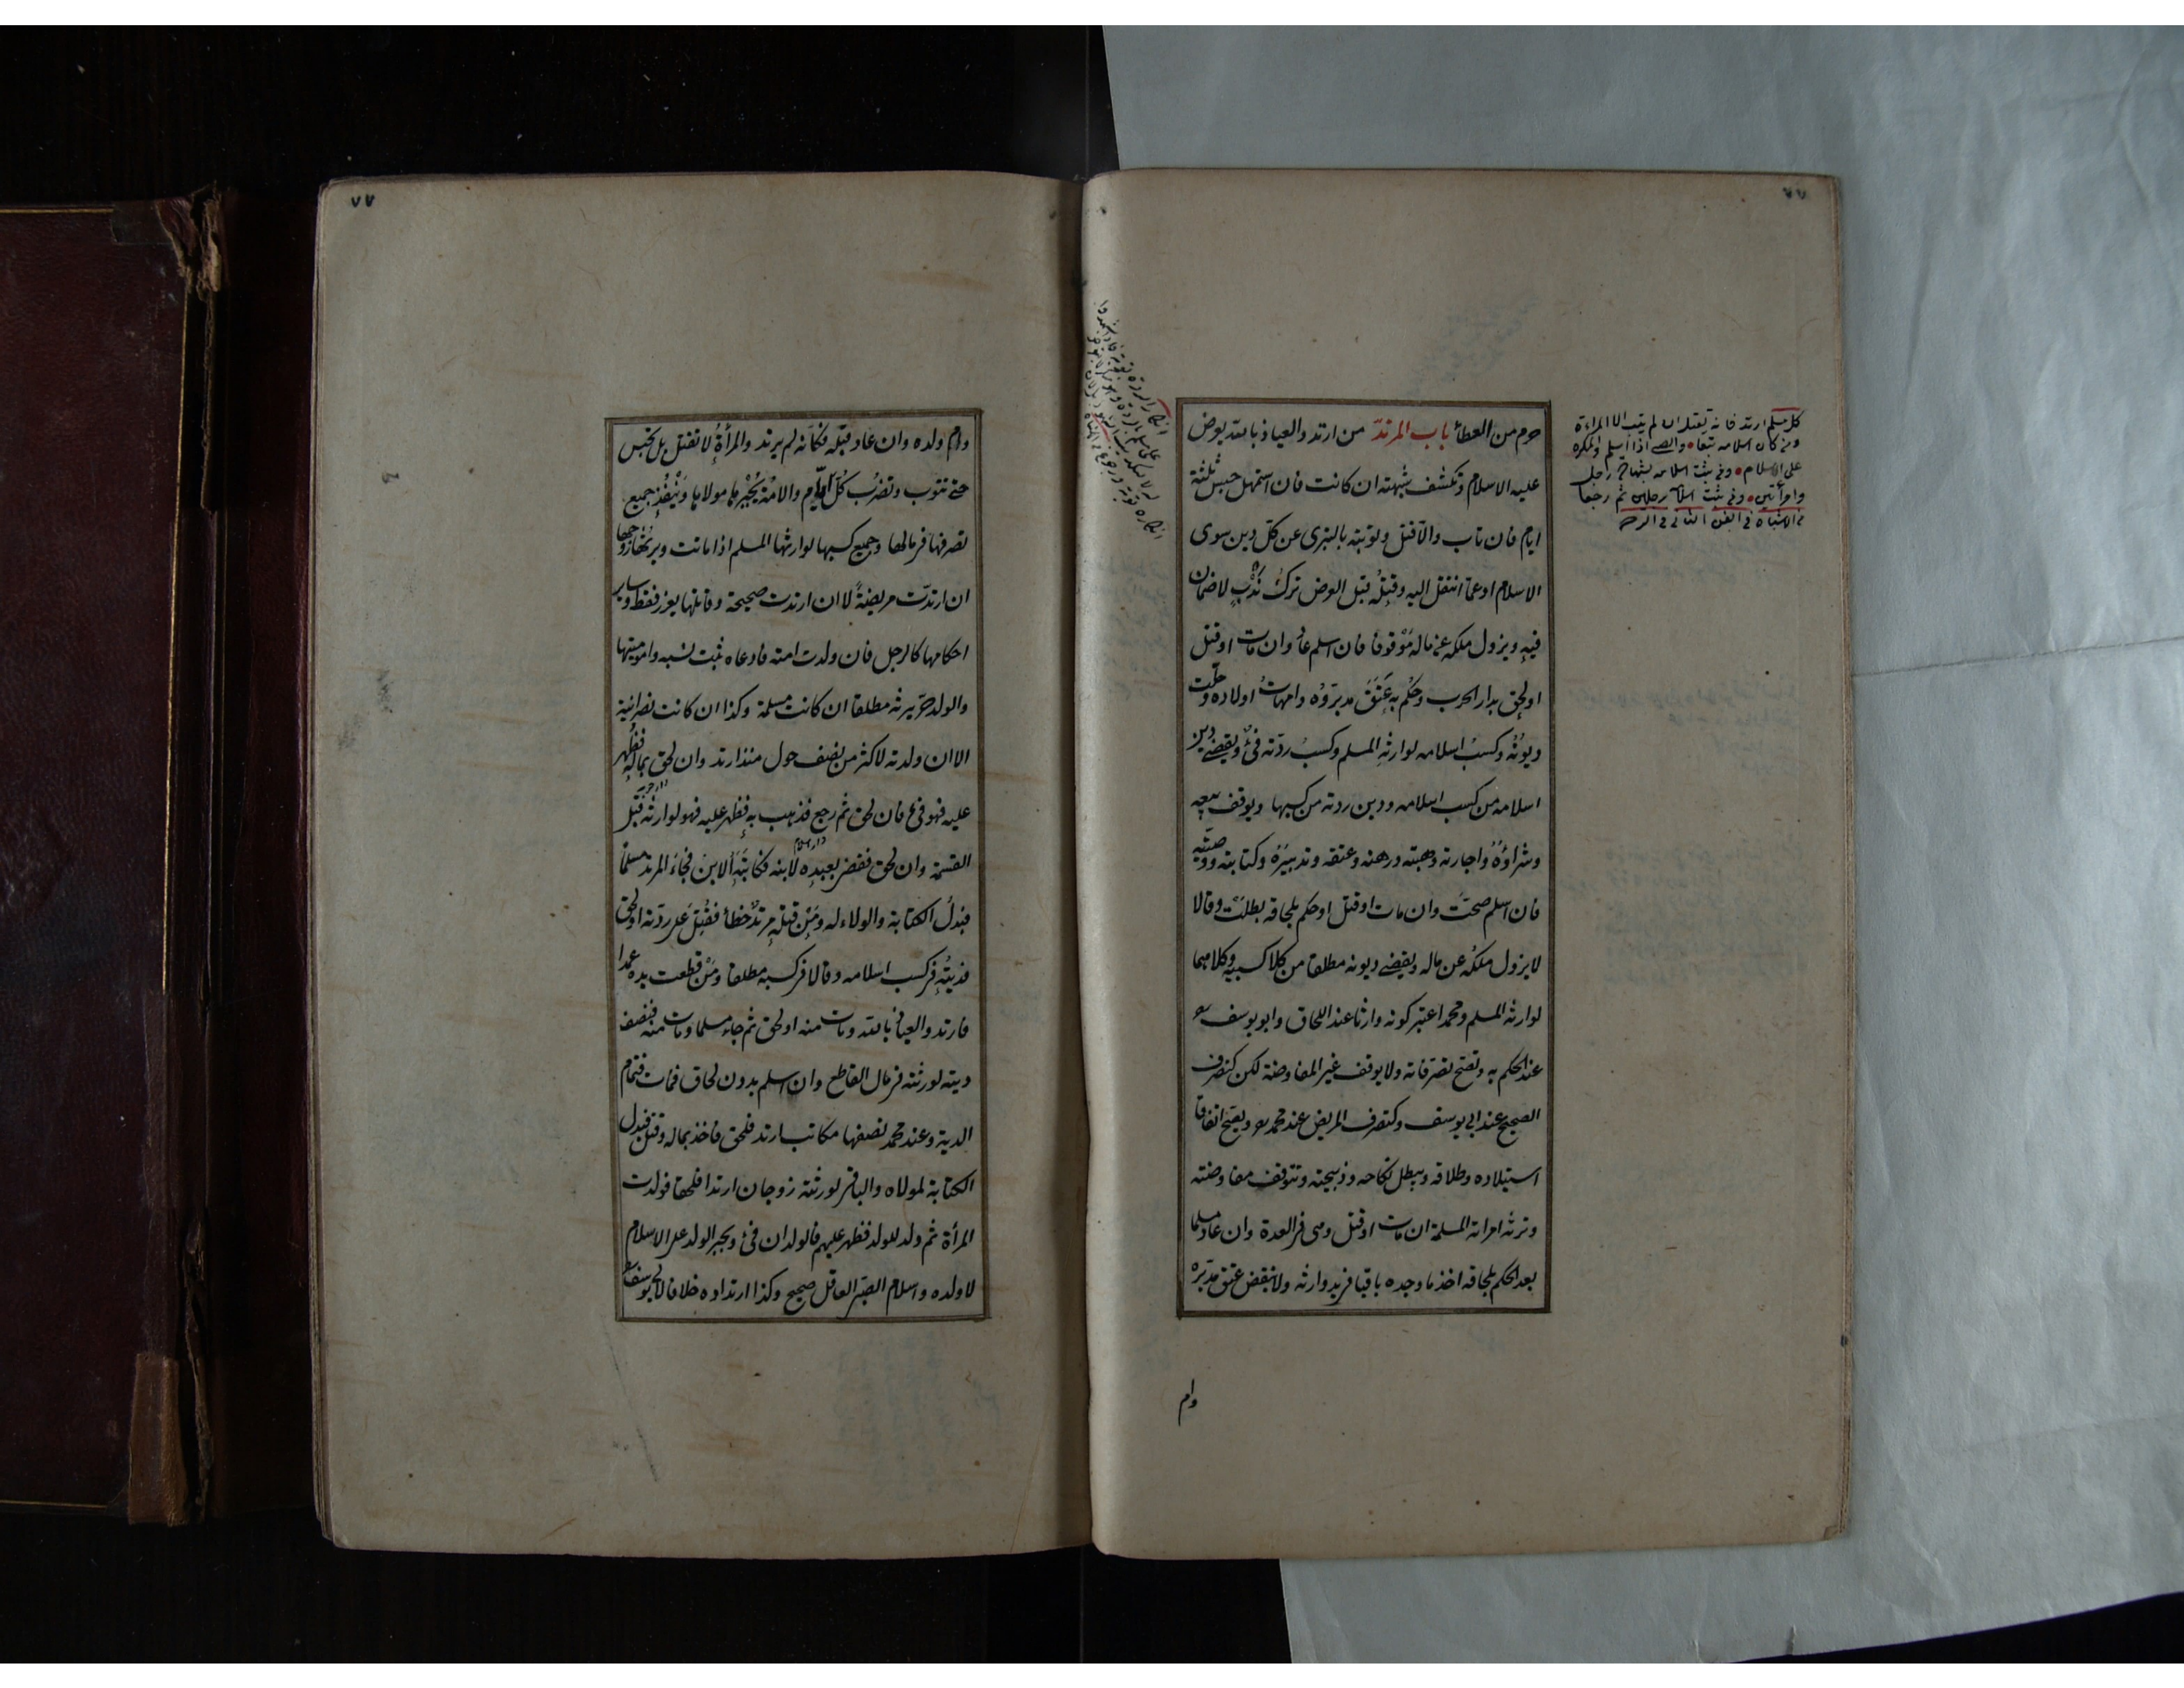 حرم من العطاء باب المرتد من ارتد والعياذ بالله يعرض
عليه الاسلام وتكشف شبهته ان كانت فان استمهل حبس ثلثة
ايام فان تاب والا قتل وتوبته بالتبرى عن كل دين سوى
الاسلام او عما انتقل اليه وقتله قبل العرض ترك ندب لا ضمان
فيه ويزول ملكه عن ماله موقوفا فان اسلم عاد وان مات او قتل
او لحق بدار الحرب وحكم به عتق مدبروه وامهات اولاده وحلت
ديونه وكسب اسلامه لوارثه المسلم وكسب ردته فئ ويقضى دين
اسلامه من كسب اسلامه ودين ردته من كسبها ويوقف بيعه
وشراؤه واجارته وهبته ورهنه وعتقه وتدبيره وكتابته ووصيته
فان اسلم صحت وان مات او قتل او حكم بلحاقه بطلت وقالا
لا يزول ملكه عن ماله ويقضى ديونه مطلقا من كلا كسبيه وكلاهما
لوارثه المسلم ومحمد اعتبر كونه وارثا عند اللحاق وابو يوسف
عند الحكم به وتصح تصرفاته ولا يوقف غير المفاوضة لكن كتصرف
الصحيح عند ابى يوسف وكتصرف المريض عند محمد ويصح اتفاقا
استيلاده وطلاقه ويبطل نكاحه وذبيحته وتتوقف مفاوضته
وترثه امراته المسلمة ان مات او قتل وهى فى العدة وان عاد مسلما
بعد الحكم بلحاقه اخذ ما وجده باقيا فى يد وارثه ولا ينقض عتق مدبره
وام
كل مسلم ارتد فانه يقتل ان لم يتب الا المراءة
ومن كان اسلامه تبعا والصبى اذا اسلم والمكره
على الاسلام ومن ثبت اسلامه بشهادة رجل
وامرأتين ومن ثبت اسلامه برجلين ثم رجعا
٧٧
وام ولده وان عاد قبله فكأنه لم يرتد والمرأة لا تقتل بل تحبس
حتى تتوب وتضرب كل ايام والامة يجبرها مولاها وينفذ جميع
تصرفها فى مالها وجميع كسبها لوارثها المسلم اذا ماتت ويرثها زوجها
ان ارتدت مريضة لا ان ارتدت صحيحة وقاتلها يعزر فقط وساير
احكامها كالرجل فان ولدت امته فادعاه ثبت نسبه واموميتها
والولد حر يرثه مطلقا ان كانت مسلمة وكذا ان كانت نصرانية
الا ان ولدته لاكثر من نصف حول منذ ارتد وان لحق بماله فظهر
عليه فهو فئ فان لحق ثم رجع فذهب به فظهر عليه فهو لوارثه قبل
القسمة وان لحق فقضى بعبده لابنه فكاتبه الابن فجاء المرتد مسلما
فبدل الكتابة والولاء له ومن قتله مرتد خطأ فقتل على ردته او لحق
فديته فى كسب اسلامه وقالا فى كسبه مطلقا ومن قطعت يده عمدا
فارتد والعياذ بالله ومات منه او لحق ثم جاء مسلما ومات منه فنصف
ديته لورثته فى مال القاطع وان اسلم بدون لحاق فمات فتمام
الدية وعند محمد نصفها مكاتب ارتد فلحق فاخذ بماله وقتل فبدل
الكتابة لمولاه والباقى لورثته زوجان ارتدا فلحقا فولدت
المرأة ثم ولد للولد فظهر عليهم فالولدان فئ ويجبر الولد على الاسلام
لا ولده واسلام الصبى العاقل صحيح وكذا ارتداده خلافا لابى يوسف